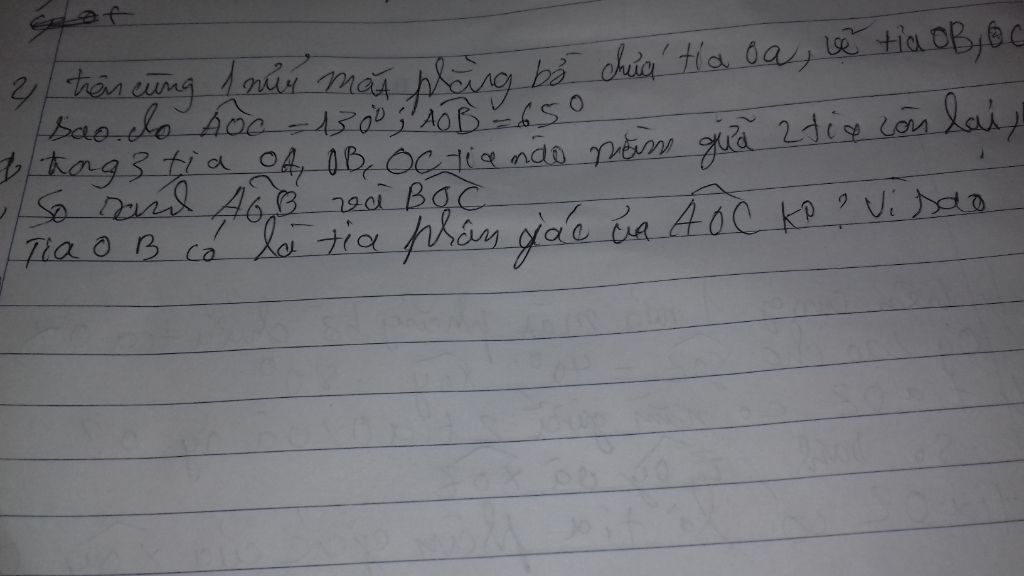 2, trên cùng 1 nửa mặt phẳng bờ chứa tia Oa, vẽ tia OB, OC
sao cho AOC = 130°; AOB = 65°
trong 3 tia OA, OB, OC tia nào nằm giữa 2 tia còn lại,
So sánh AOB và BOC
Tia OB có là tia phân giác của AOC ko? Vì sao